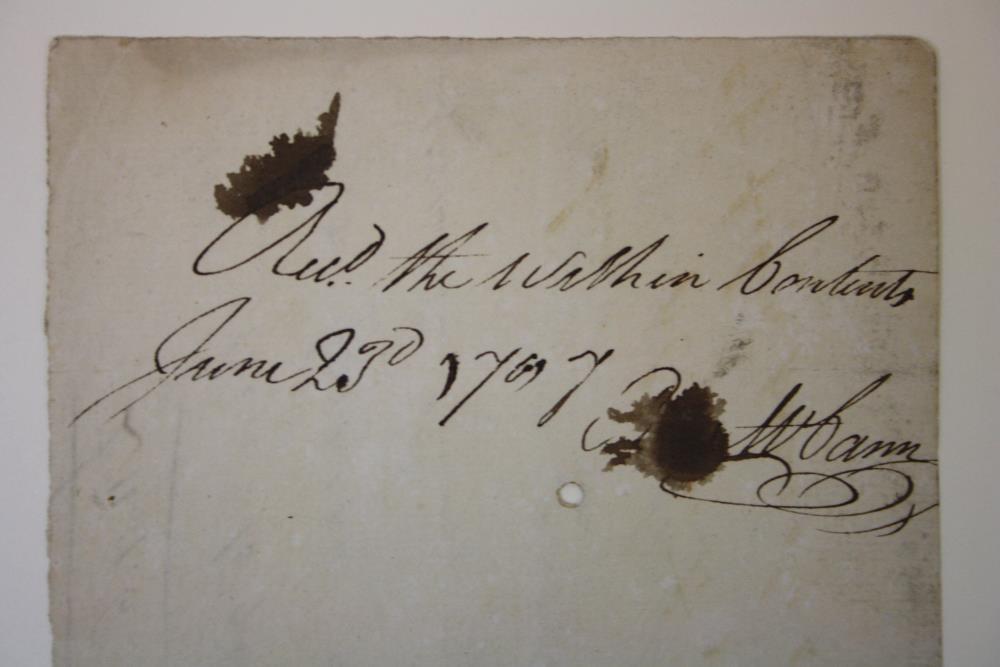 Recd. the Within Contents
June 23d 1797
McCann